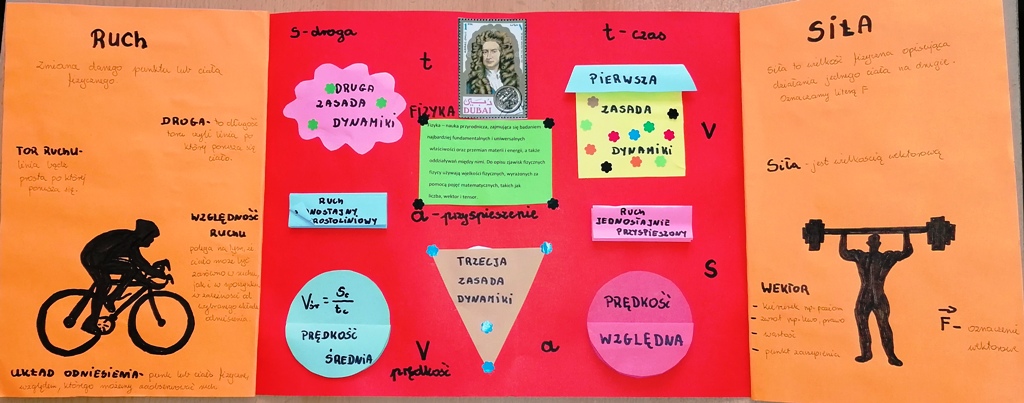 Ruch
Zmiana danego punktu lub ciała
fizycznego
DROGA- to długość
toru czyli linia, po
której porusza się
ciało.
TOR RUCHU-
linia będąca
prosta po której
porusza się.
WZGLĘDNOŚĆ
RUCHU
polega na tym, że
ciało może być
zarówno w ruchu,
jak i w spoczynku,
w zależności od
wybranego układu
odniesienia.
UKŁAD ODNIESIENIA- punkt lub ciało fizyczne,
względem, którego możemy zaobserwować ruch
s-droga
t
DRUGA
ZASADA
DYNAMIKI
RUCH
JEDNOSTAJNY
PROSTOLINIOWY
Vśr = Sc
tc
PRĘDKOŚĆ
ŚREDNIA
DUBAI
FIZYKA
Fizyka – nauka przyrodnicza, zajmująca się badaniem
najbardziej fundamentalnych i uniwersalnych
właściwości oraz przemian materii i energii, a także
oddziaływań między nimi. Do opisu zjawisk fizycznych
fizycy używają wielkości fizycznych, wyrażonych za
pomocą pojęć matematycznych, takich jak
liczba, wektor i tensor.
a - przyspieszenie
TRZECJA
ZASADA
DYNAMIKI
V
prędkość
a
t - czas
PIERWSZA
ZASADA
DYNAMIKI
V
RUCH
JEDNOSTAJNIE
PRZYSPIESZONY
S
PRĘDKOŚĆ
WZGLĘDNA
SIŁA
Siła to wielkość fizyczna opisująca
działania jednego ciała na drugie.
Oznaczamy literą F.
Siła - jest wielkością wektorową
WEKTOR
- kierunek np. poziom
- zwrot np. lewo, prawo
- wartość
- punkt zaczepienia
F - oznaczenie
wektorowe